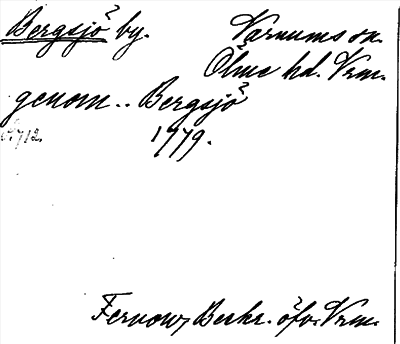 Bergsjö by. Varnums sn.
Ölme hd. Vrm.
genom .. Bergsjö
1779.
Fernow, Beskr. öfv. Vrm.